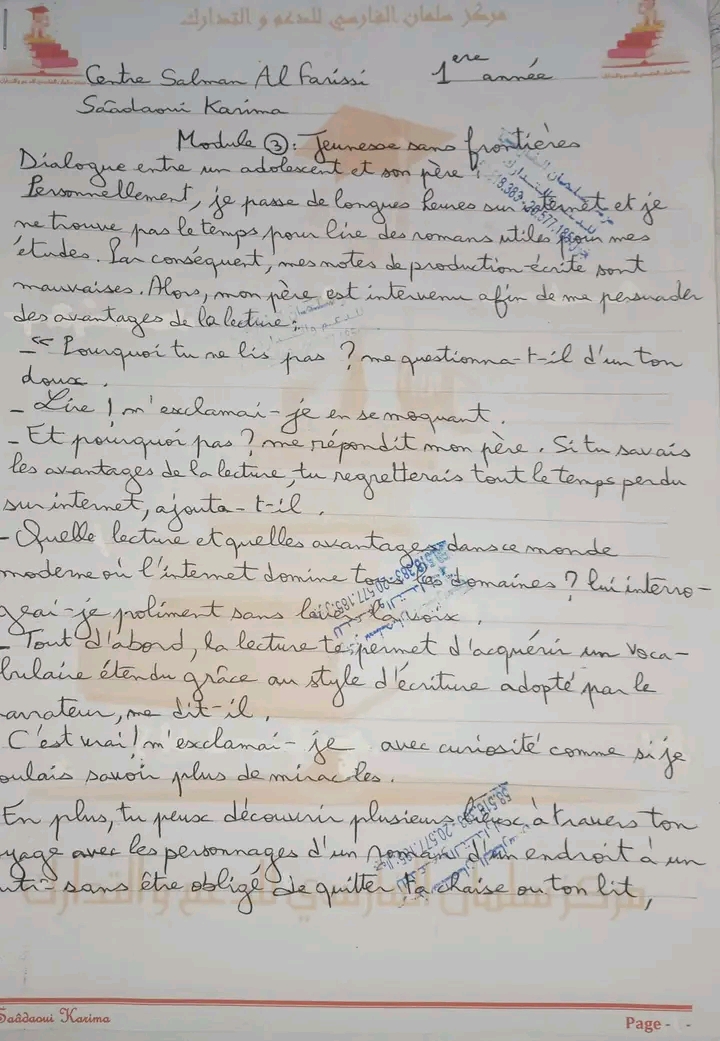 مركز سلمان الفارسي للدعم و التدارك
Centre Salman Al Farissi 1ere année
Saâdaoui Karima
Module ③: Jeunesse sans frontières
Dialogue entre un adolescent et son père :
Personnellement, je passe de longues heures sur internet et je
ne trouve pas le temps pour lire des romans utiles pour mes
études. Par conséquent, mes notes de production écrite sont
mauvaises. Alors, mon père est intervenu afin de me persuader
des avantages de la lecture :
– « Pourquoi tu ne lis pas ? me questionna-t-il d'un ton
doux.
– Lire ! m'exclamai-je en se moquant.
– Et pourquoi pas ? me répondit mon père. Si tu savais
les avantages de la lecture, tu regretterais tout le temps perdu
sur internet, ajouta-t-il.
– Quelle lecture et quelles avantages dans ce monde
moderne où l'internet domine tous les domaines ? lui interro-
geai-je poliment sans la voix.
– Tout d'abord, la lecture te permet d'acquérir un voca-
bulaire étendu grâce au style d'écriture adopté par le
arrateur, me dit-il.
C'est vrai ! m'exclamai-je avec curiosité comme si je
oulais savoir plus de miracles.
En plus, tu peux découvrir plusieurs à travers ton
yage avec les personnages d'un roman d'un endroit à un
utre sans être obligé de quitter ta chaise ou ton lit,
مركز سلمان الفارسي للدعم والتدارك
Saâdaoui Karima
Page - -